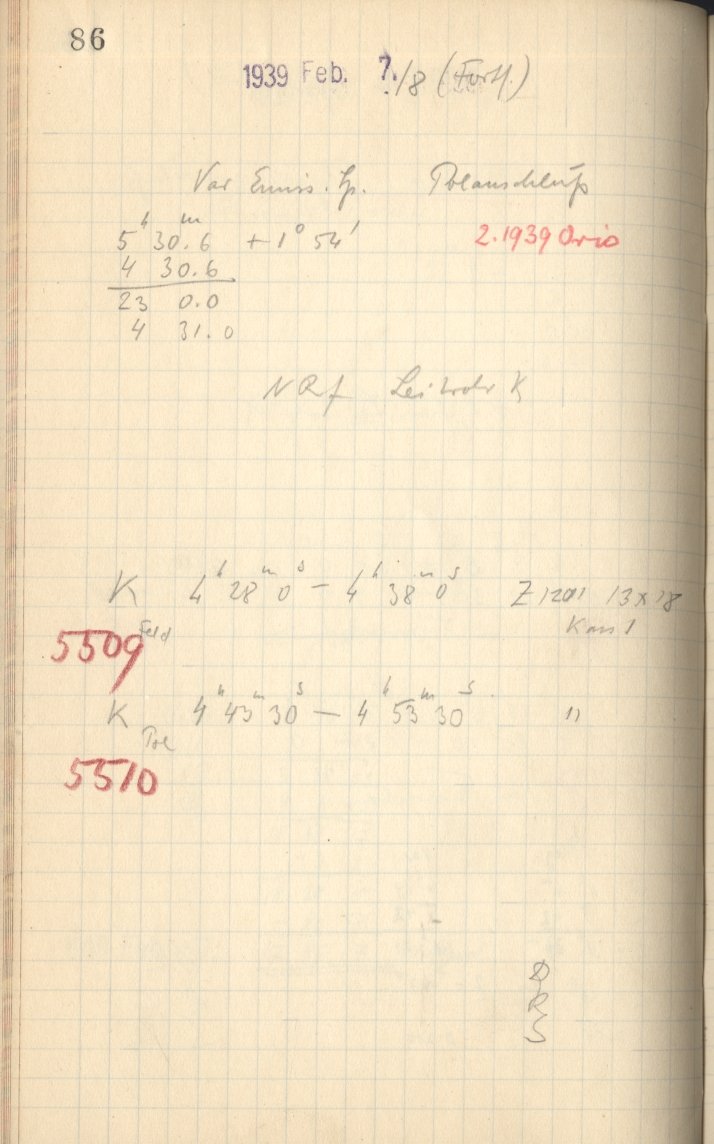 86
1939 Feb. 7./8 (Forts.)
Var Emiss. Sp. Polanschluß
5ʰ 30.6ᵐ +1° 54' 2.1939 Orio
4 30.6
23 0.0
4 31.0
NRf Leitrohr K
K 4ʰ 28ᵐ 0ˢ – 4ʰ 38ᵐ 0ˢ Z 1201 13x18
Feld Kass 1
5509
K 4ʰ 43ᵐ 30ˢ – 4ʰ 53ᵐ 30ˢ "
Pol
5510
D
R
S